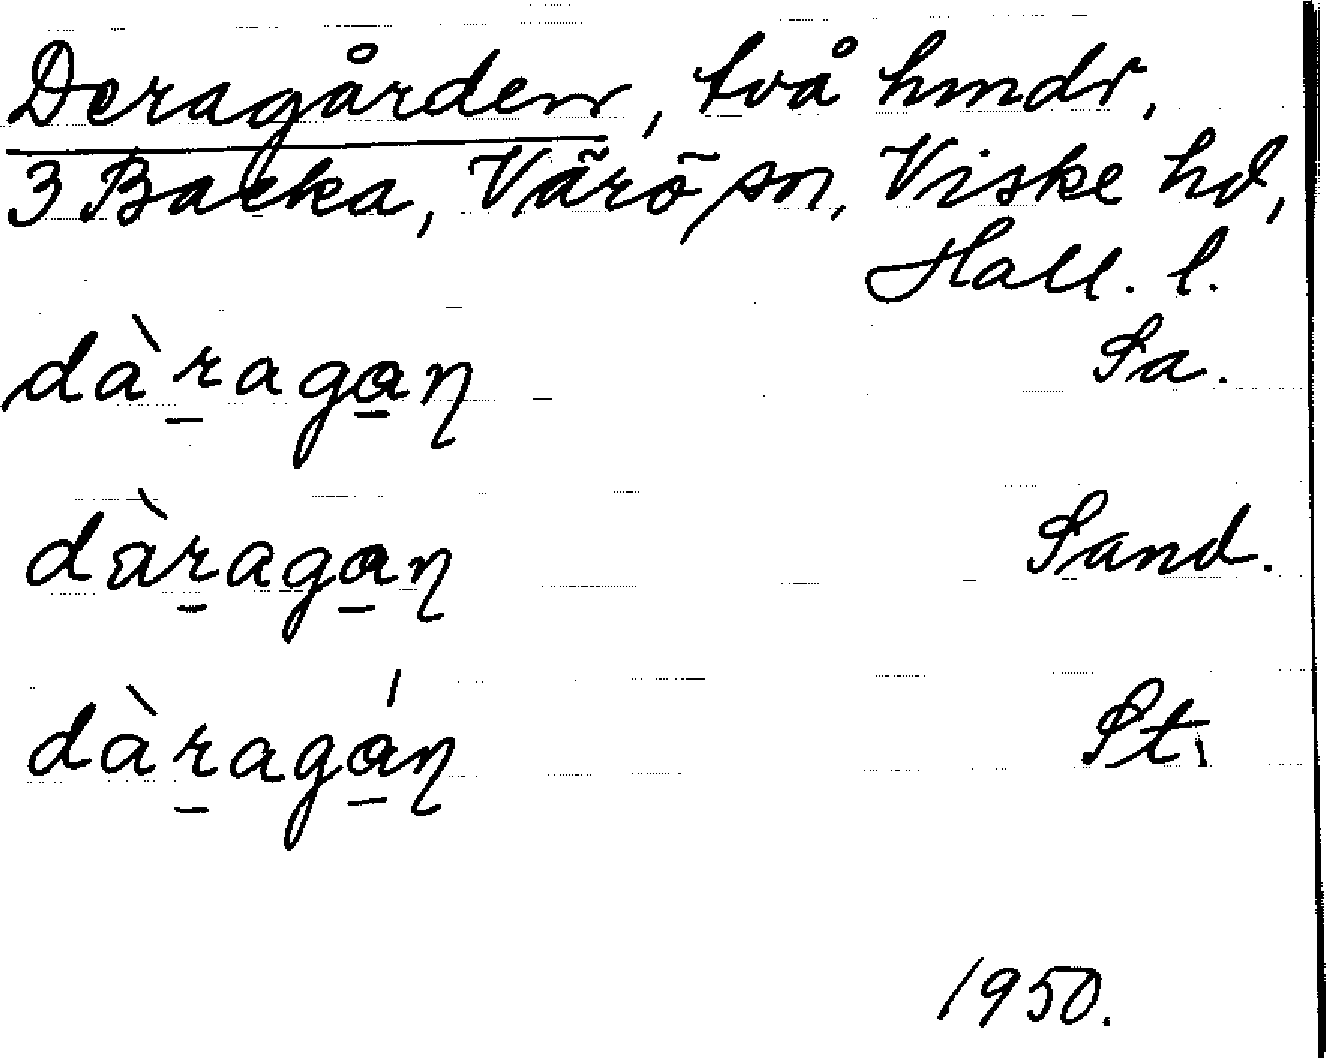 Deragården, två hmdr,
3 Backa, Värö sn, Viske hd,
Hall. l.
dàr̠aga̠ɳ Sa.
dàr̠aga̠ɳ Sand.
dàr̠agá̠ɳ St.
1950.